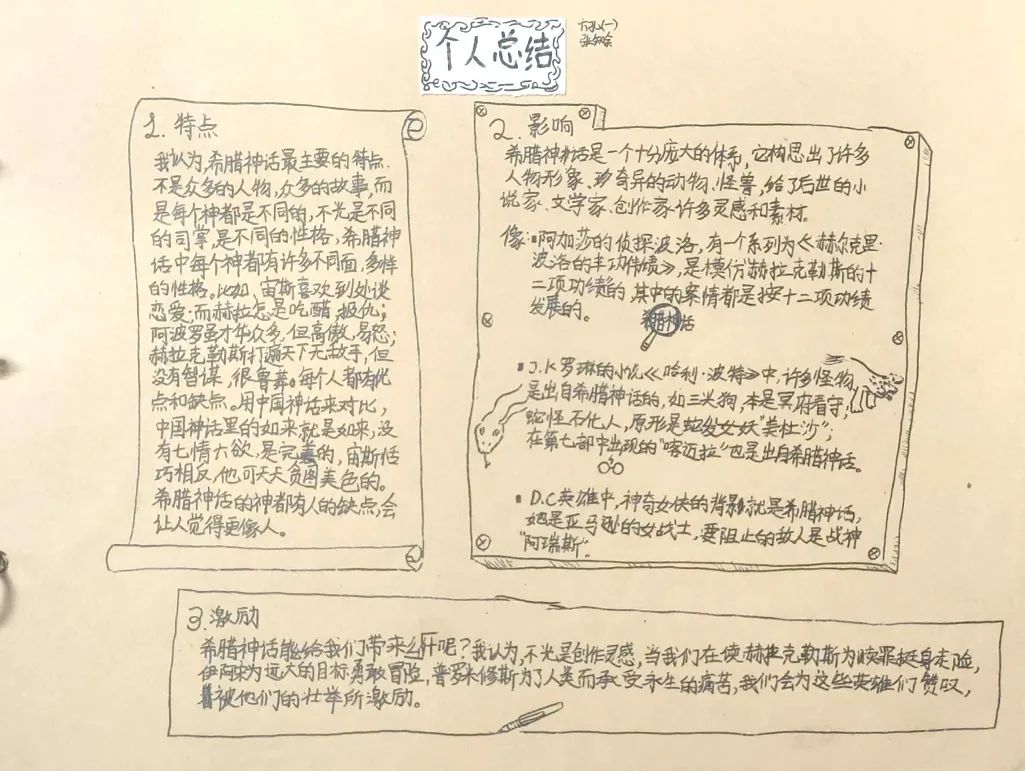 个人总结
六孔(一)
张知念
1. 特点
我认为,希腊神话最主要的特点
不是众多的人物,众多的故事,而
是每个神都是不同的,不光是不同
的司掌,是不同的性格,希腊神
话中每个神都有许多不同面,多样
的性格。比如,宙斯喜欢到处谈
恋爱,而赫拉怎是吃醋,报仇;
阿波罗虽才华众多,但高傲,易怒;
赫拉克勒斯打遍天下无敌手,但
没有智谋,很鲁莽。每个人都有优
点和缺点。用中国神话来对比,
中国神话里的如来就是如来,没
有七情六欲,是完美的,宙斯恰
巧相反,他可天天贪图美色的。
希腊神话的神都有人的缺点,会
让人觉得更像人。
2. 影响
希腊神话是一个十分庞大的体系,它构思出了许多
人物形象、珍奇异的动物、怪兽,给了后世的小
说家、文学家、创作家许多灵感和素材。
像:▪阿加莎的侦探波洛,有一个系列为《赫尔克里·
波洛的丰功伟绩》,是模仿赫拉克勒斯的十
二项功绩的,其中的案情都是按十二项功绩
发展的。
希腊神话
▪J.K罗琳的小说《哈利·波特》中,许多怪物
是出自希腊神话的,如三头狗,本是冥府看守;
蛇怪石化人,原形是蛇发女妖"美杜沙";
在第七部中出现的"喀迈拉"也是出自希腊神话。
▪D.C英雄中,神奇女侠的背影就是希腊神话,
她是亚马逊的女战士,要阻止的敌人是战神
"阿瑞斯"。
3.激励
希腊神话能给我们带来么什呢?我认为,不光是创作灵感,当我们在使赫拉克勒斯为赎罪挺身走险,
伊阿宋为远大的目标勇敢冒险,普罗米修斯为了人类而承受永生的痛苦,我们会为这些英雄们赞叹,
被他们的壮举所激励。